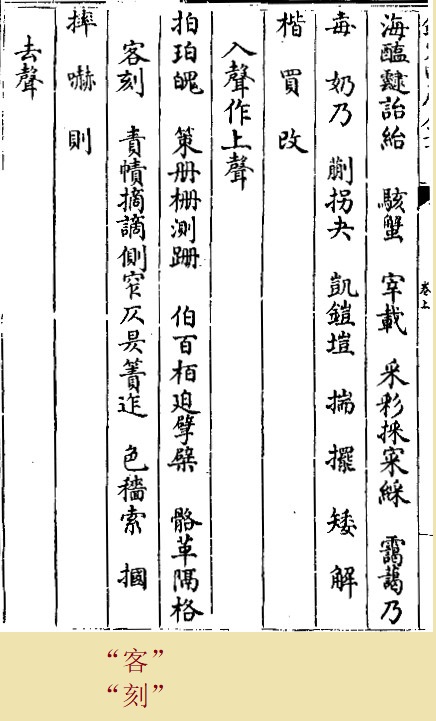 海醢䜕詒紿 駭蟹 宰載 采彩採寀綵 靄藹乃
毐 奶乃 蒯拐夬 凱鎧塏 揣 擺 矮 解
楷 買 改
入聲作上聲
拍珀魄 策册柵測跚 伯百栢迫擘檗 骼革隔格
客刻 責幘摘謫側窄仄昃簀迮 色穡索 摑
摔 嚇 則
去聲
卷上
“客”
“刻”